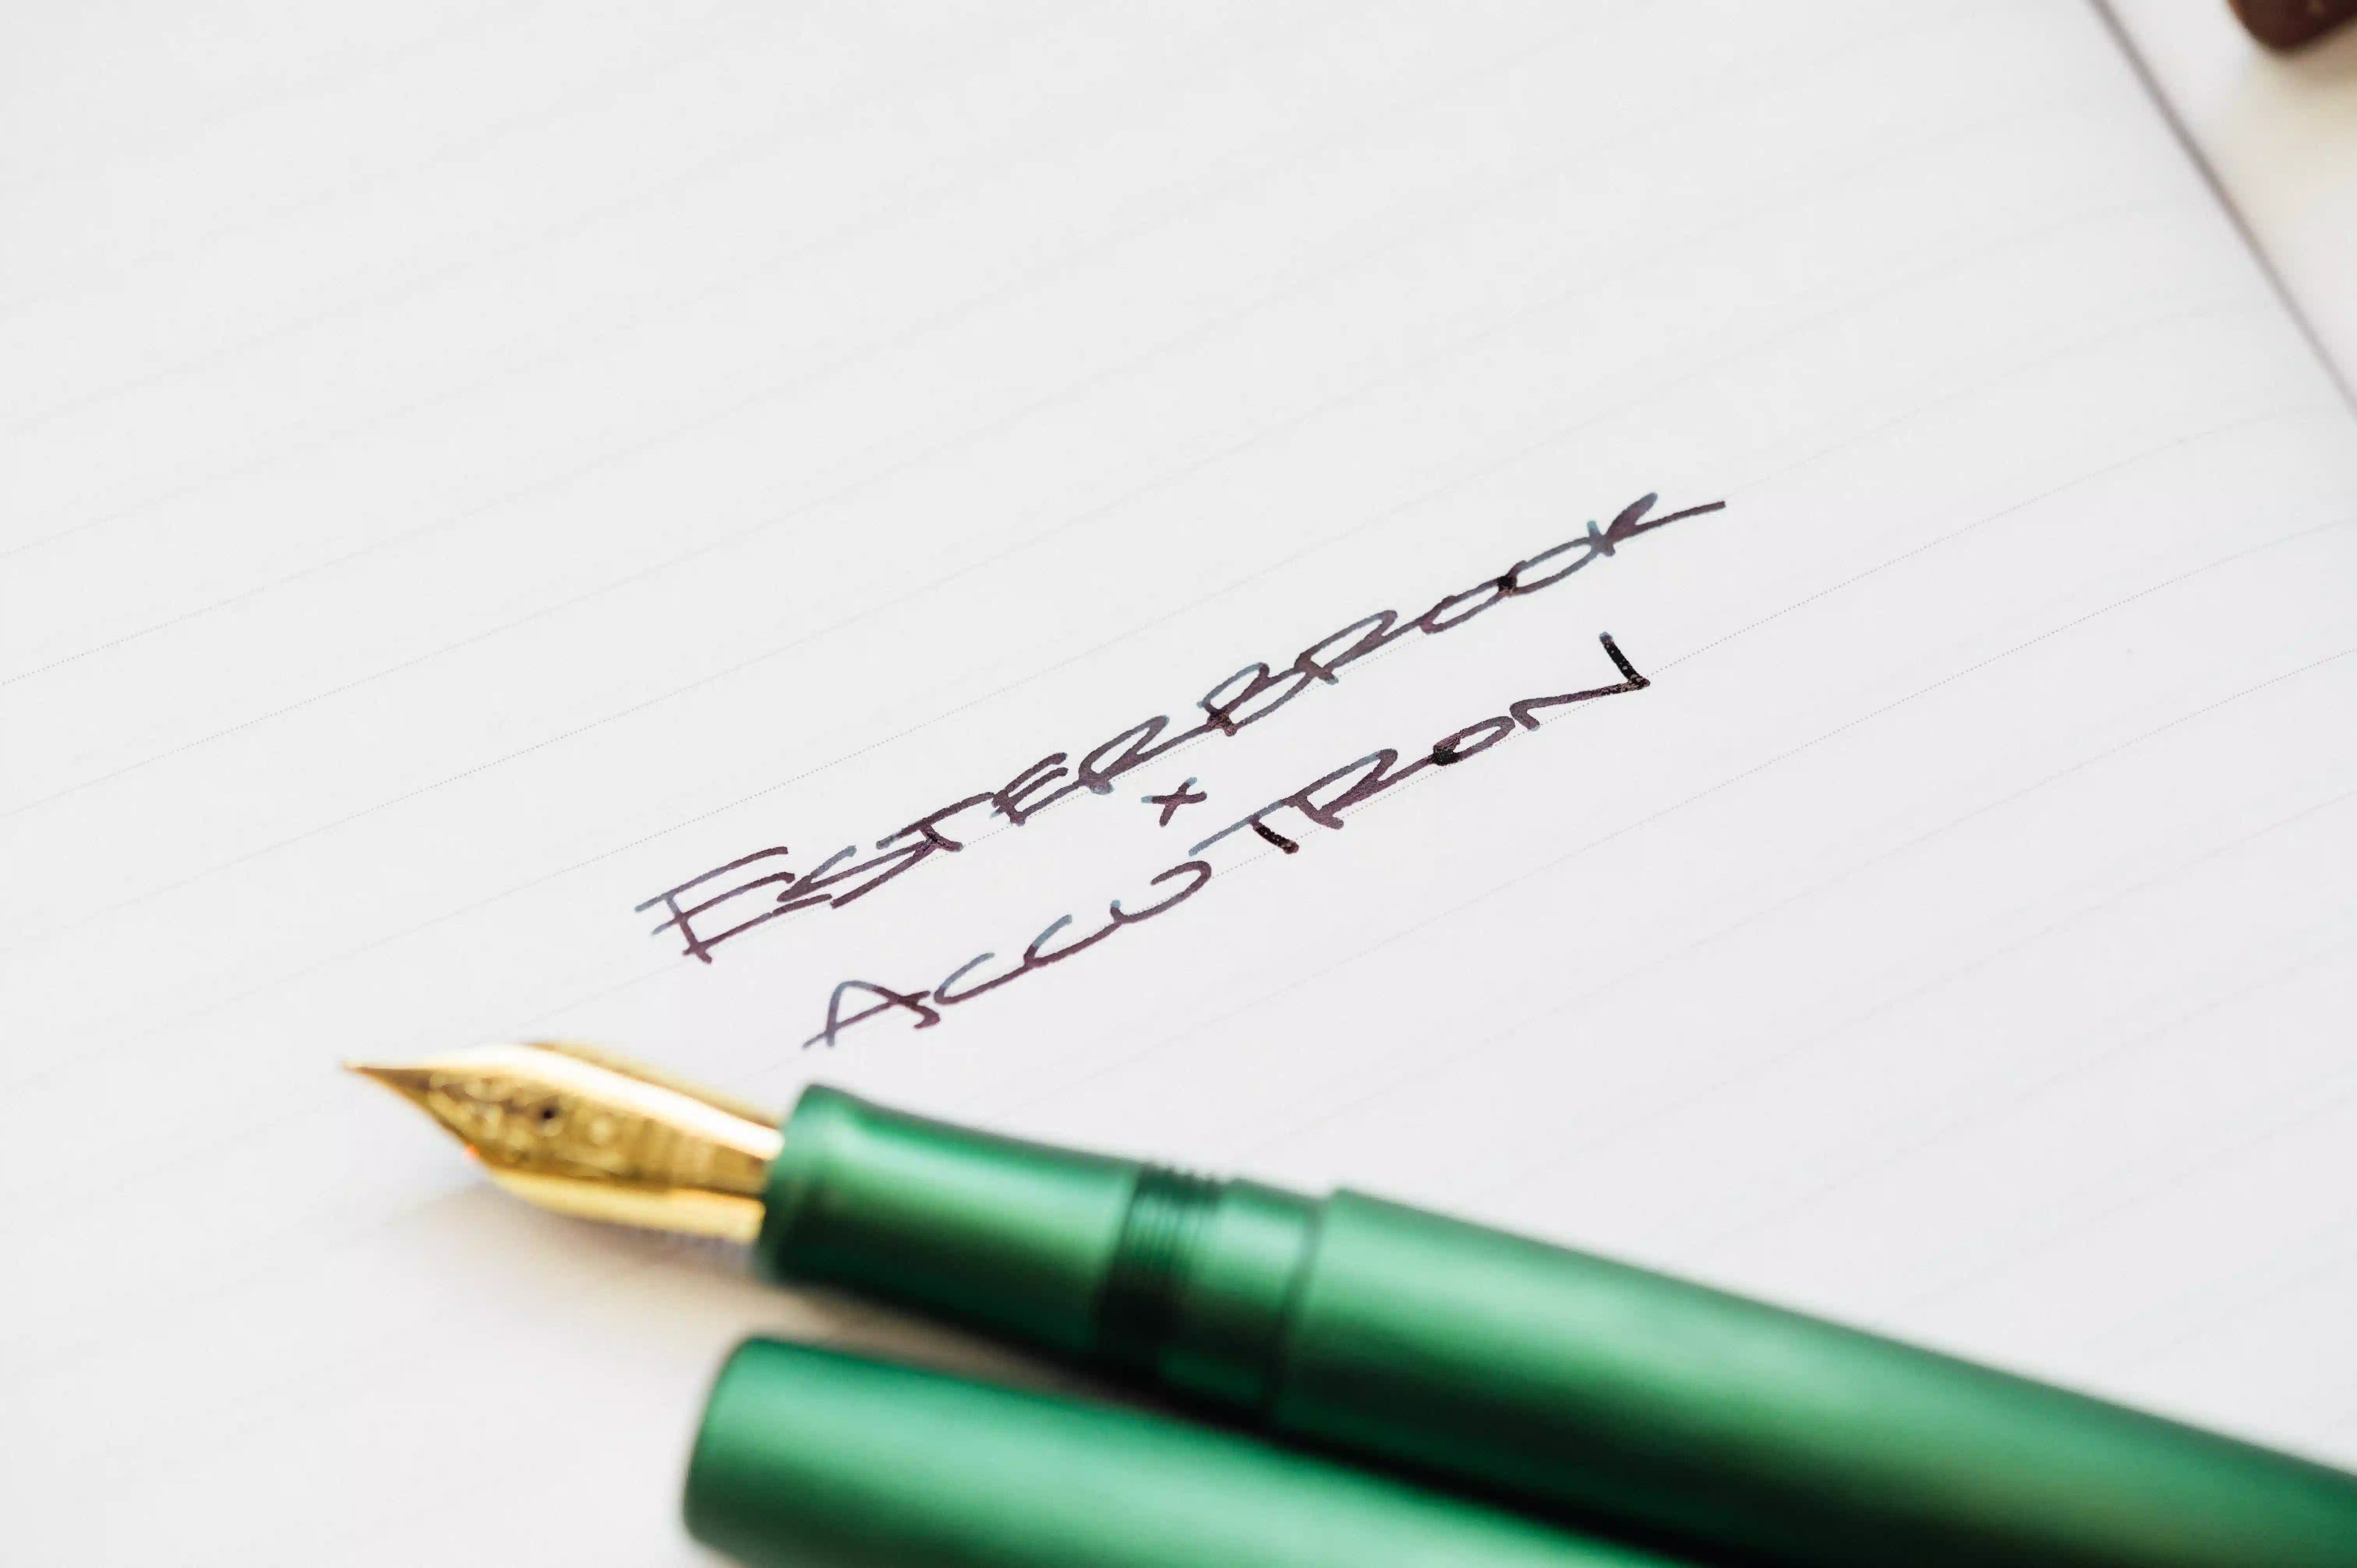 ESTERBROOK
x
ACCUTRON